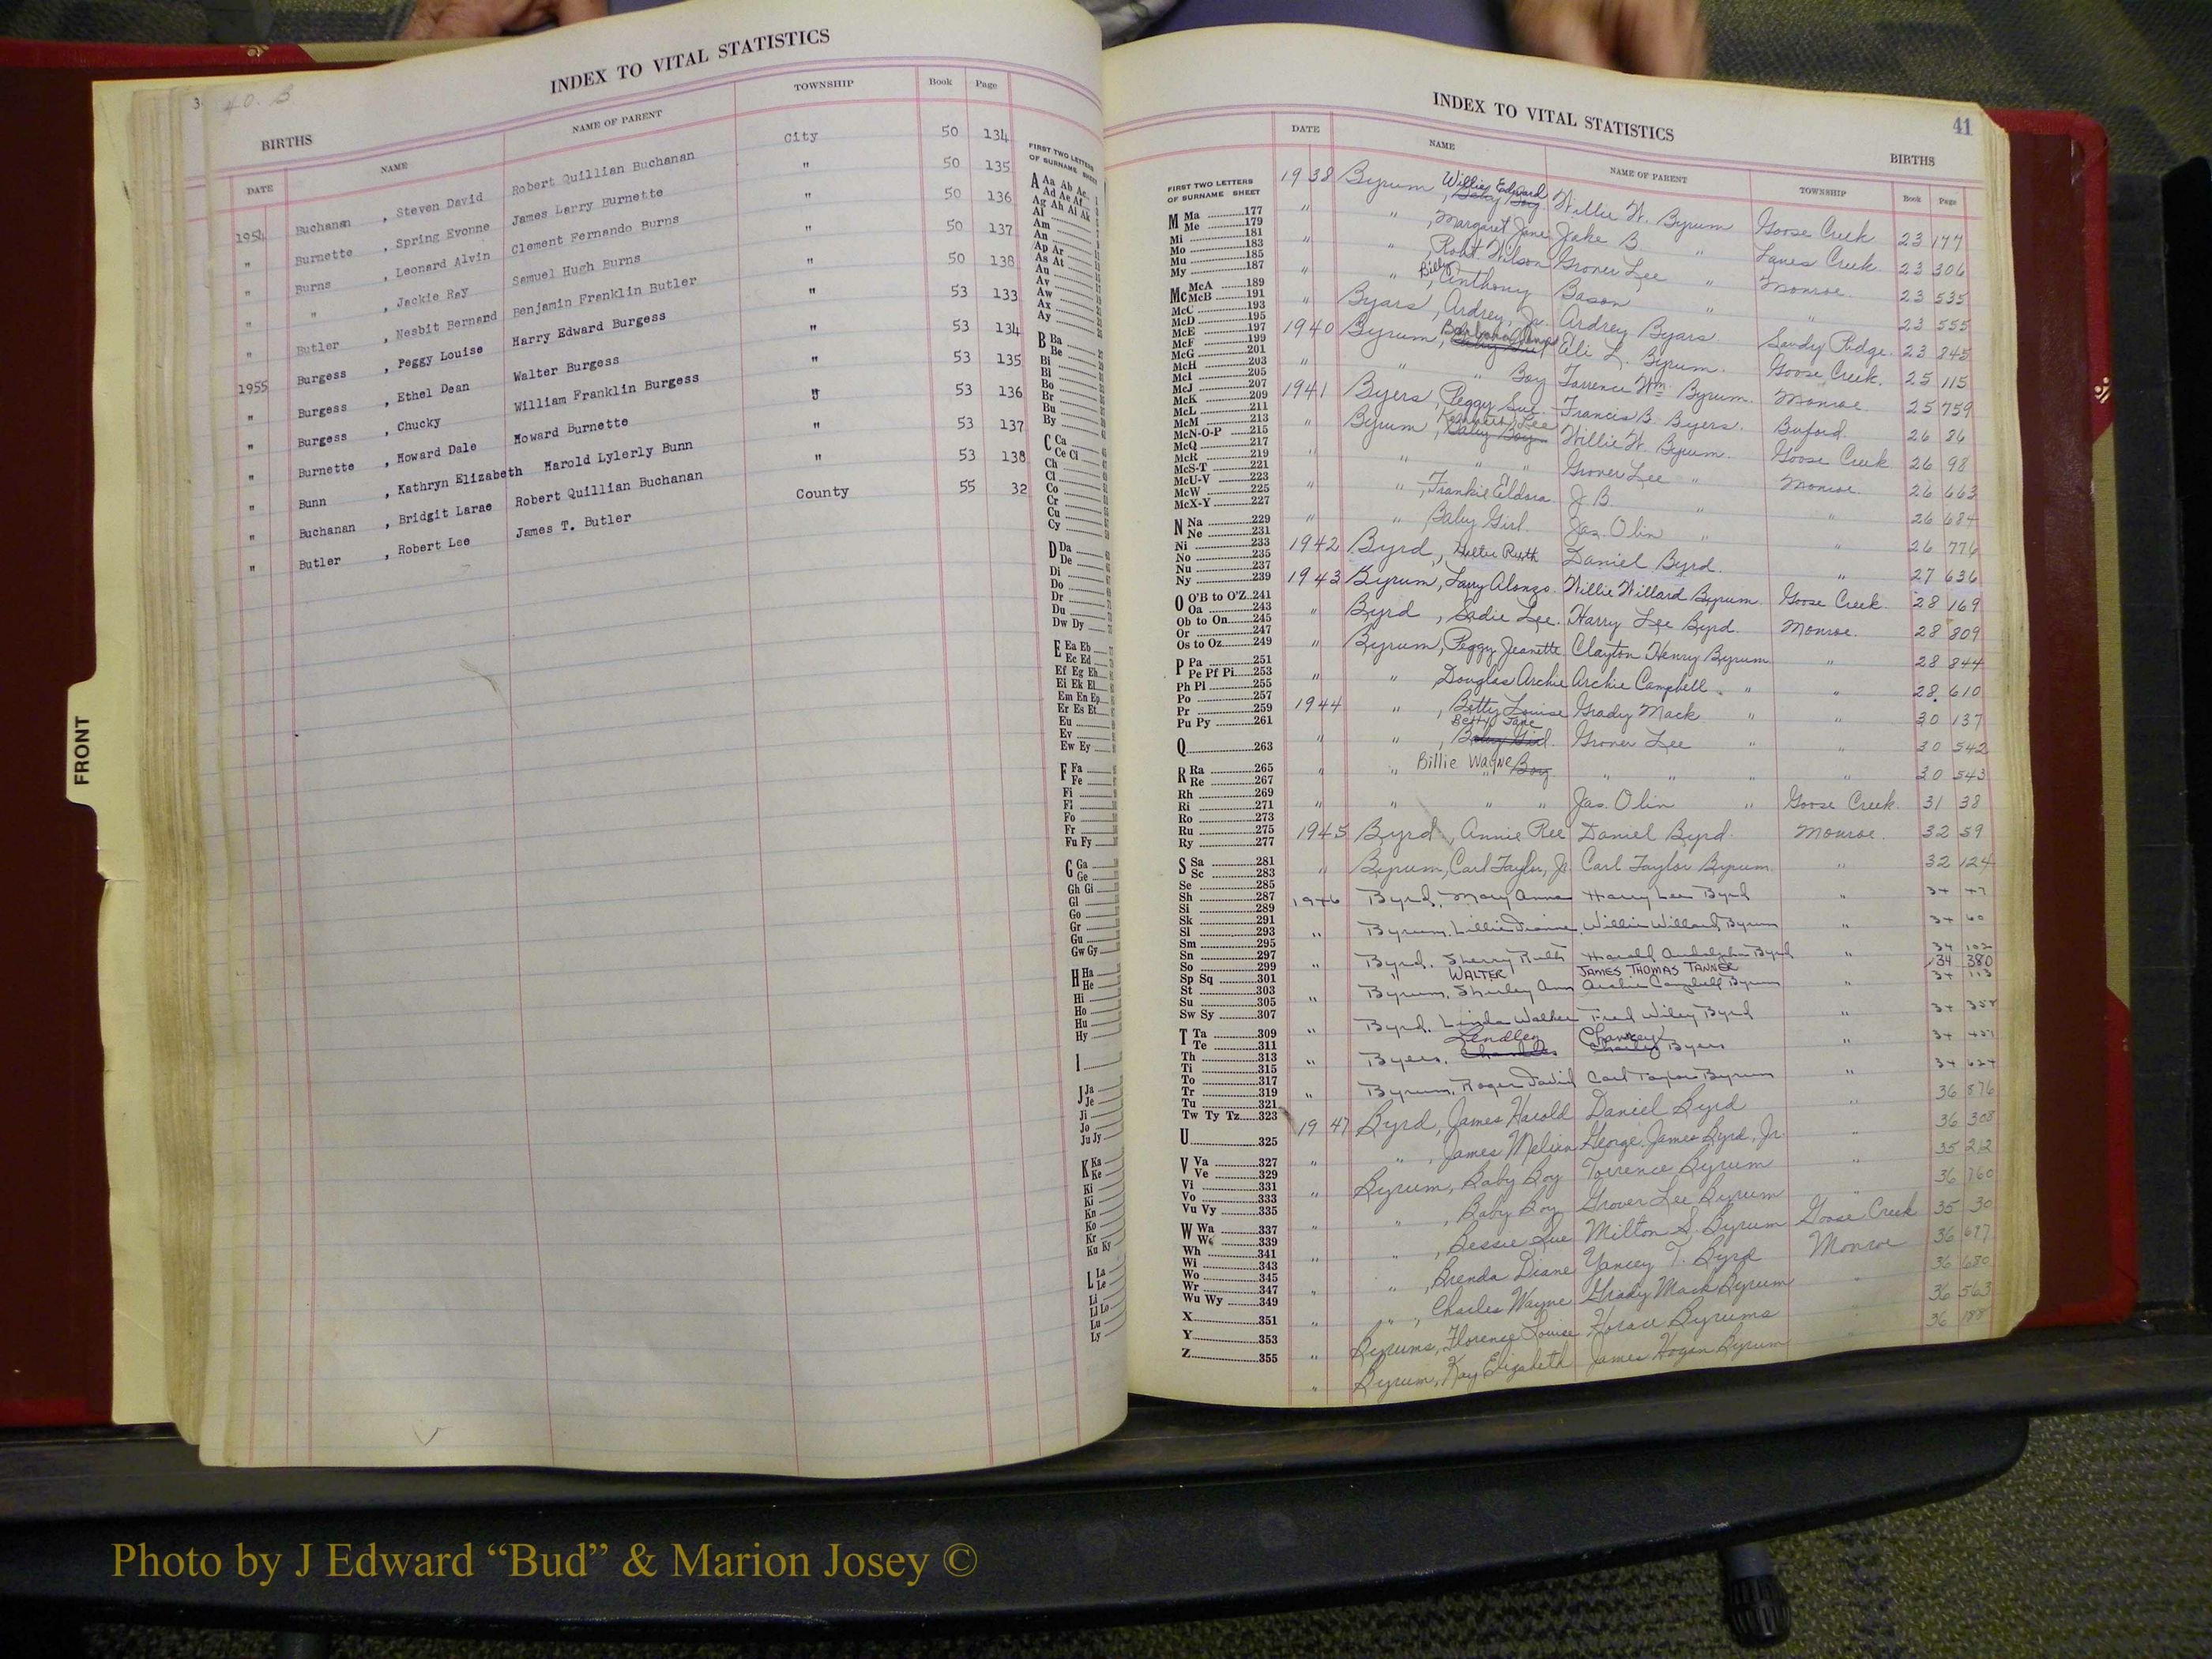 3
40. B
INDEX TO VITAL STATISTICS
BIRTHS
DATE NAME NAME OF PARENT TOWNSHIP Book Page
1954 Buchanan , Steven David Robert Quillian Buchanan City 50 134
" Burnette , Spring Evonne James Larry Burnette " 50 135
" Burns , Leonard Alvin Clement Fernando Burns " 50 136
" " , Jackie Ray Samuel Hugh Burns " 50 137
" Butler , Nesbit Bernard Benjamin Franklin Butler " 50 138
1955 Burgess , Peggy Louise Harry Edward Burgess " 53 133
" Burgess , Ethel Dean Walter Burgess " 53 134
" Burgess , Chucky William Franklin Burgess " 53 135
" Burnette , Howard Dale Howard Burnette " 53 136
" Bunn , Kathryn Elizabeth Harold Lylerly Bunn " 53 137
" Buchanan , Bridgit Larae Robert Quillian Buchanan " 53 138
" Butler , Robert Lee James T. Butler County 55 32
FRONT
FIRST TWO LETTERS
OF SURNAME SHEET
A Aa Ab Ac
Ad Ae Af
Ag Ah Ai Ak
Al
Am
An
Ap Ar
As At
Au
Av
Aw
Ax
Ay
B Ba
Be
Bi
Bl
Bo
Br
Bu
By
C Ca
Ce Ci
Ch
Cl
Co
Cr
Cu
Cy
D Da
De
Di
Do
Dr
Du
Dw Dy
E Ea Eb
Ec Ed
Ef Eg Eh
Ei Ek El
Em En Ep
Er Es Et
Eu
Ev
Ew Ey
F Fa
Fe
Fi
Fl
Fo
Fr
Fu Fy
G Ga
Ge
Gh Gi
Gl
Go
Gr
Gu
Gw Gy
H Ha
He
Hi
Ho
Hu
Hy
I
J Ja
Je
Ji
Jo
Ju Jy
K Ka
Ke
Ki
Kl
Kn
Ko
Kr
Ku Ky
L La
Le
Li
Ll Lo
Lu
Ly
INDEX TO VITAL STATISTICS
41
BIRTHS
DATE NAME NAME OF PARENT TOWNSHIP Book Page
FIRST TWO LETTERS
OF SURNAME SHEET
M Ma 177
Me 179
Mi 181
Mo 183
Mu 185
My 187
Mc McA 189
McB 191
McC 193
McD 195
McE 197
McF 199
McG 201
McH 203
McI 205
McJ 207
McK 209
McL 211
McM 213
McN-O-P 215
McQ 217
McR 219
McS-T 221
McU-V 223
McW 225
McX-Y 227
N Na 229
Ne 231
Ni 233
No 235
Nu 237
Ny 239
O O'B to O'Z 241
Oa 243
Ob to On 245
Or 247
Os to Oz 249
P Pa 251
Pe Pf Pi 253
Ph Pl 255
Po 257
Pr 259
Pu Py 261
Q 263
R Ra 265
Re 267
Rh 269
Ri 271
Ro 273
Ru 275
Ry 277
S Sa 281
Sc 283
Se 285
Sh 287
Si 289
Sk 291
Sl 293
Sm 295
Sn 297
So 299
Sp Sq 301
St 303
Su 305
Sw Sy 307
T Ta 309
Te 311
Th 313
Ti 315
To 317
Tr 319
Tu 321
Tw Ty Tz 323
U 325
V Va 327
Ve 329
Vi 331
Vo 333
Vu Vy 335
W Wa 337
We 339
Wh 341
Wi 343
Wo 345
Wr 347
Wu Wy 349
X 351
Y 353
Z 355
1938 Byrum , Willie Edward Baby Boy Willie W. Byrum Goose Creek 23 177
" " , Margaret Jane Jake B. " Lanes Creek 23 306
" " , Robt. Wilson Grover Lee " Monroe 23 535
" " , Billy Anthony Bason " " 23 555
" Byars, Ardrey, Jr. Ardrey Byars Sandy Ridge 23 845
1940 Byrum, Baby Girl Eli L. Byrum Goose Creek 25 115
" " " Boy Torrence Wm. Byrum Monroe 25 759
1941 Byers, Peggy Sue Francis B. Byers Buford 26 86
" Byrum, Kenneth Lee Baby Boy Willie W. Byrum Goose Creek 26 98
" " " " Grover Lee " Monroe 26 663
" " , Frankie Eldora J. B. " " 26 684
" " Baby Girl Jas. Olin " " 26 776
1942 Byrd, Hattie Ruth Daniel Byrd " 27 636
1943 Byrum, Larry Alonzo Willie Willard Byrum Goose Creek 28 169
" Byrd , Sadie Lee Harry Lee Byrd Monroe 28 809
" Byrum, Peggy Jeanette Clayton Henry Byrum " 28 844
" " Douglas Archie Archie Campbell " " 28 610
1944 " , Betty Louise Grady Mack " " 30 137
" " , Betty Jane Baby Girl Grover Lee " " 30 542
" " Billie Wayne " Boy " " " " 30 543
" " " " Jas. Olin " Goose Creek 31 38
1945 Byrd, Annie Ree Daniel Byrd Monroe 32 59
" Byrum, Carl Taylor, Jr. Carl Taylor Byrum " 32 124
1946 Byrd, Mary Anna Harry Lee Byrd " 34 47
" Byrum, Lillie Dianne Willie Willard Byrum " 34 60
" Byrd, Sherry Ruth Harold Byrd " 34 102
" WALTER JAMES THOMAS TANNER 34 380
" Byrum, Shirley Ann Archie Campbell Byrum " 34 113
" Byrd, Linda Walker Fred Wiley Byrd " 34
" Byers, Lendley Charles Chancey Charley Byers " 34
" Byrum, Roger David Carl Taylor Byrum " 34 624
1947 Byrd, James Harold Daniel Byrd " 36 876
" " , James Melvin George James Byrd, Jr. " 36 308
" Byrum, Baby Boy Torrence Byrum " 35 212
" " , Baby Boy Grover Lee Byrum " 36 160
" " , Bessie Sue Milton S. Byrum Goose Creek 35 30
" " , Brenda Diane Yancey T. Byrd Monroe 36 687
" " , Charles Wayne Grady Mack Byrum " 36 680
" Byrums, Florence Louise Horace Byrums " 36 563
" Byrum, Kay Elizabeth James Hogan Byrum " 36 188
Photo by J Edward “Bud” & Marion Josey ©